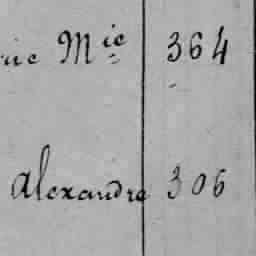 rie Mie 364
Alexandre 306